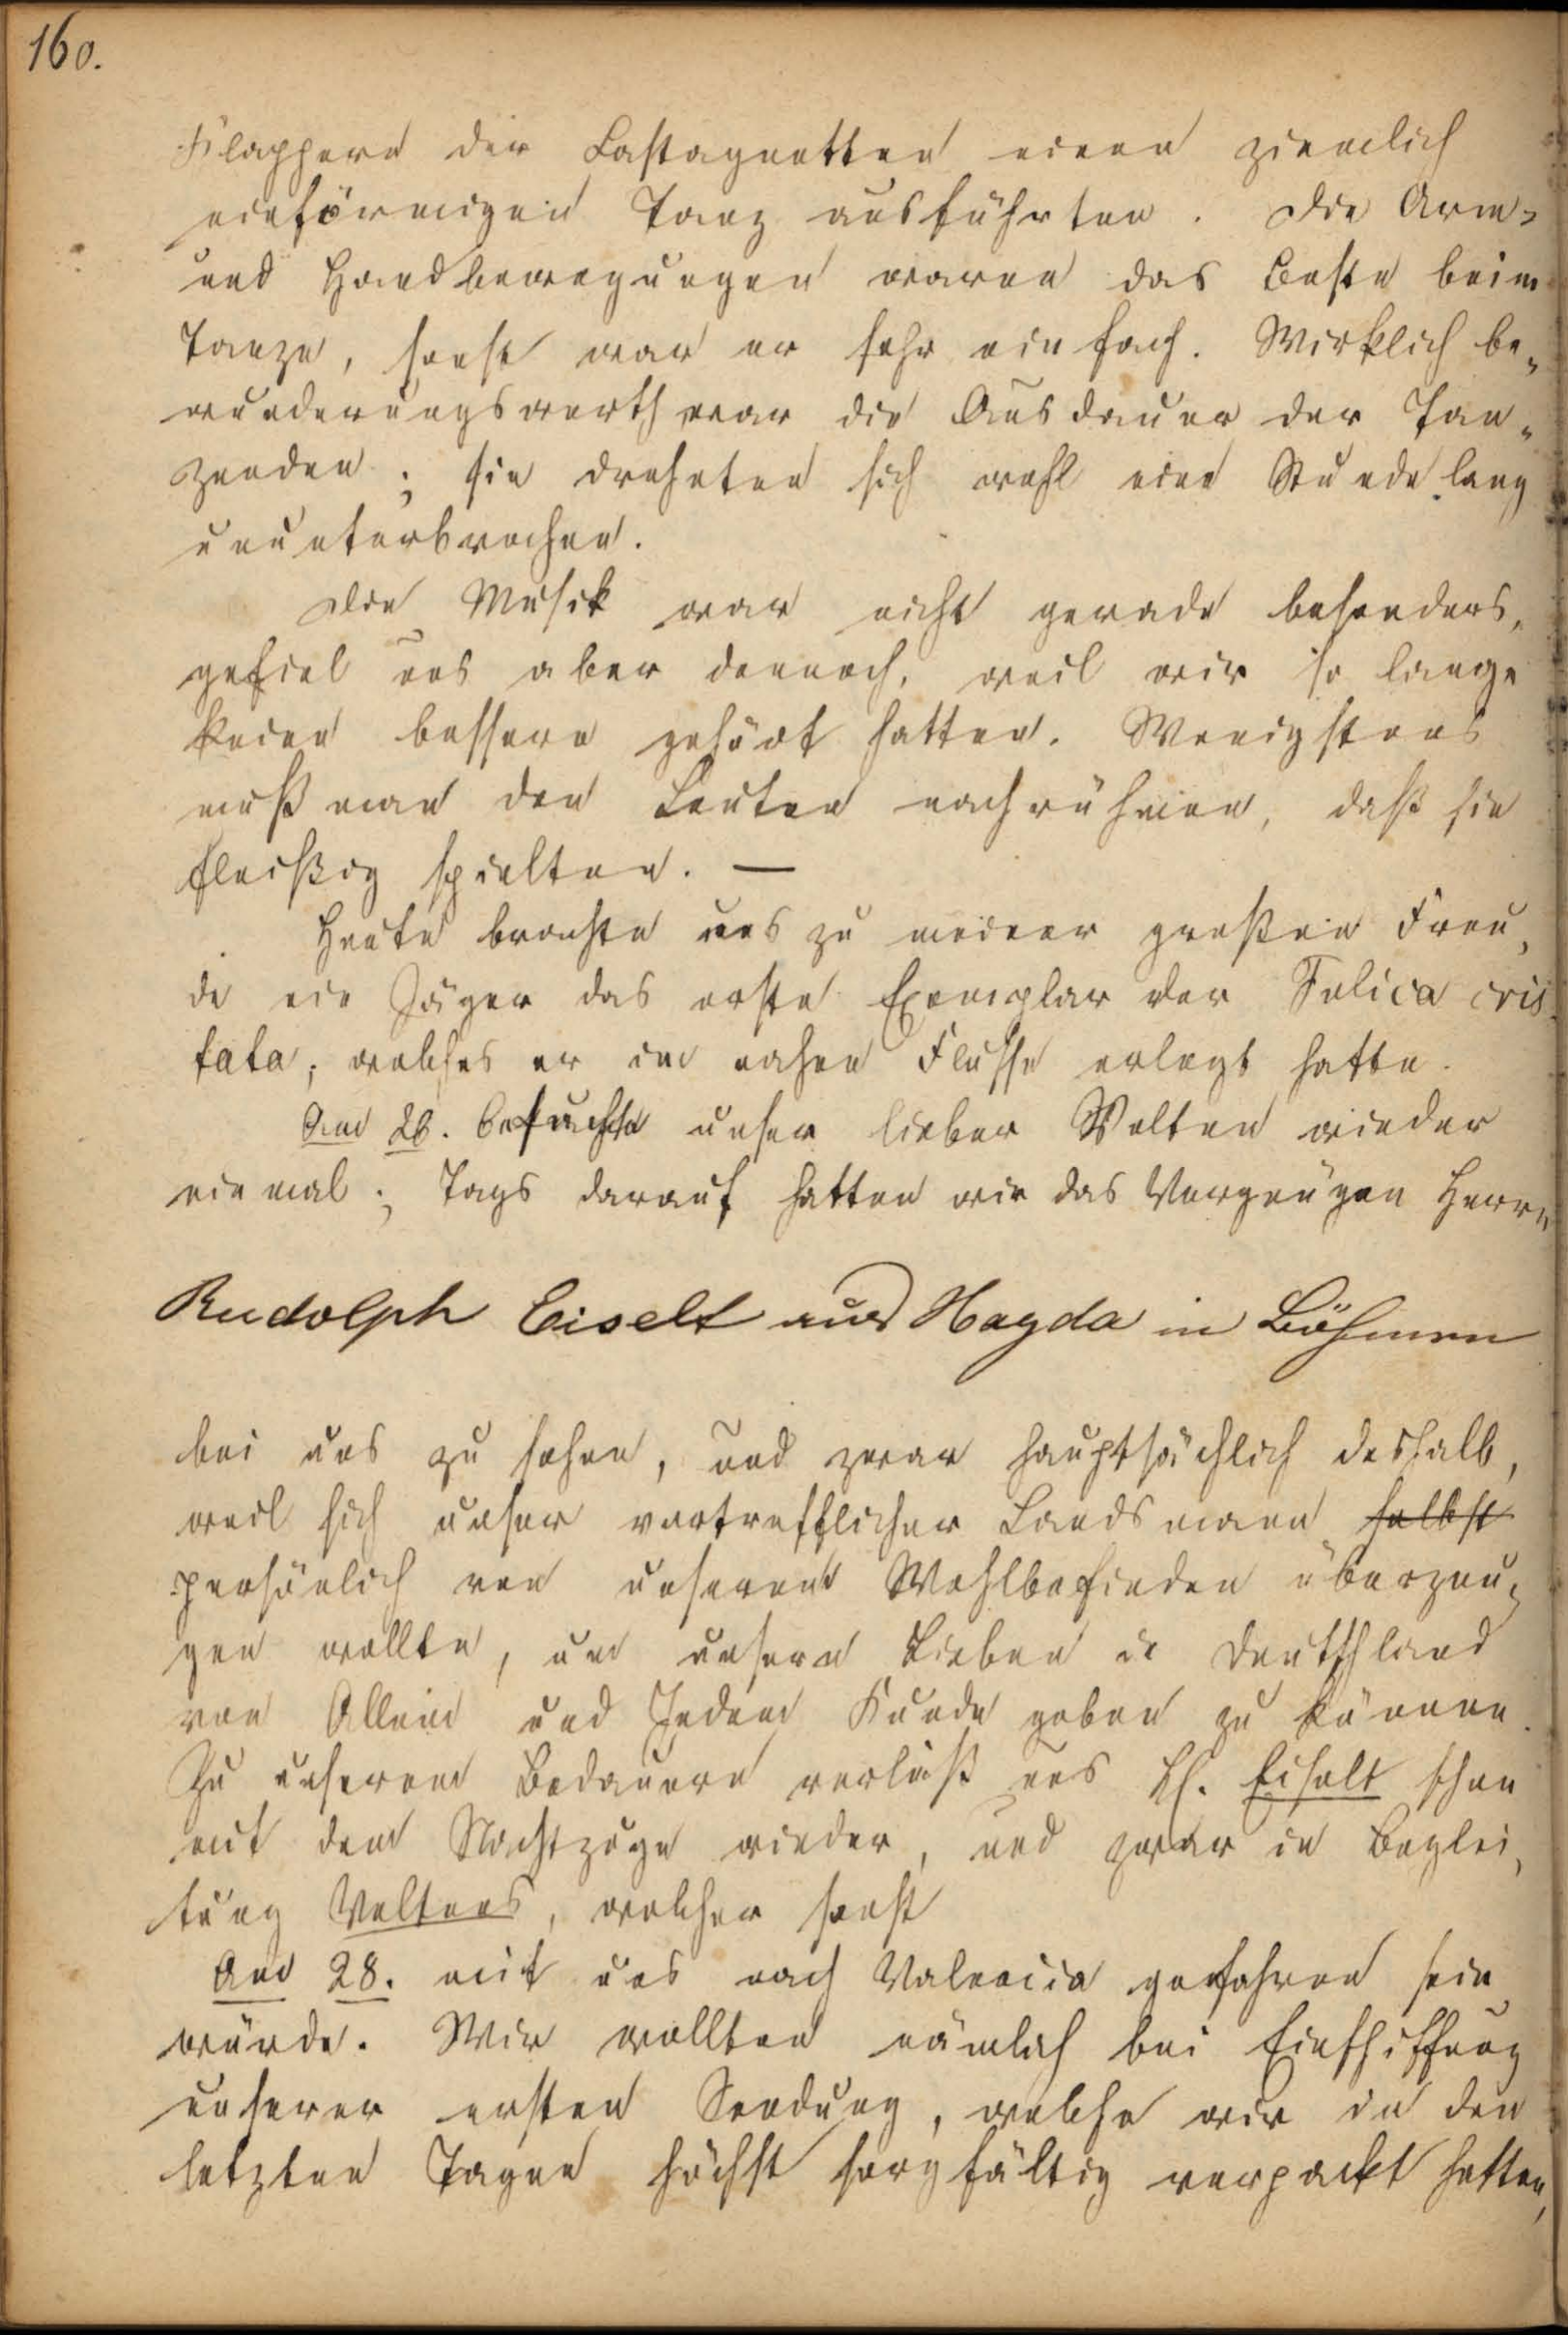 160.
Klappern der Castagnetten einen ziemlich
einförmigen Tanz ausführten. Die Arm-
und Handbewegungen waren das Beste beim
Tanze, sonst war er sehr einfach. Wirklich be-
wunderungswerth war die Ausdauer der Tan-
zenden; sie drehten sich wohl eine Stunde lang
ununterbrochen.
Die Musik war nicht gerade besonders,
gefiel uns aber dennoch, weil wir so lange
keine bessere gehört hatten. Wenigstens
muß man den Leuten nachrühmen, daß sie
fleißig spielten. —
Heute brachte uns zu meiner großen Freu-
de ein Jäger das erste Exemplar der Fulica cris-
tata, welches er im nahen Flusse erlegt hatte.
Am 26. besuchte unser lieber Welten wieder
einmal; Tags darauf hatten wir das Vergnügen Herrn
Rudolph Eiselt aus Hayda in Böhmen
bei uns zu sehen, und zwar hauptsächlich deshalb,
weil sich unser vortrefflicher Landsmann selbst
persönlich von unserem Wohlbefinden überzeu-
gen wollte, um unsern Lieben in Deutschland
von Allem und Jedem Kunde geben zu können.
Zu unserem Bedauern verließ uns H. Eiselt schon
mit dem Nachtzuge wieder, und zwar in Beglei-
tung Weltens, welcher sonst
Am 28. mit uns nach Valencia gefahren sein
würde. Wir wollten nämlich bei Einschiffung
unserer ersten Sendung, welche wir in den
letzten Tagen höchst sorgfältig verpackt hatten,